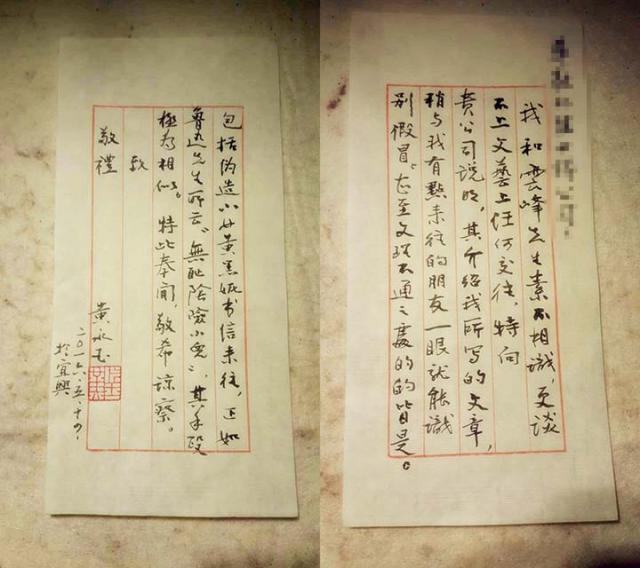 我和雲峰先生素不相識，更談
不上文藝上任何交往，特向
貴公司説明，其介紹我所写的文章，
稍与我有點来往的朋友一眼就能識
别假冒，甚至文理不通之處的的皆是。
包括伪造小女黄黑妮书信来往，正如
魯迅先生所云“無耻陰險小兒”，其手段
極为相似。特此奉闻，敬希諒察。
致
敬禮
黄永玉
二〇一六·五·十四·
於宜興